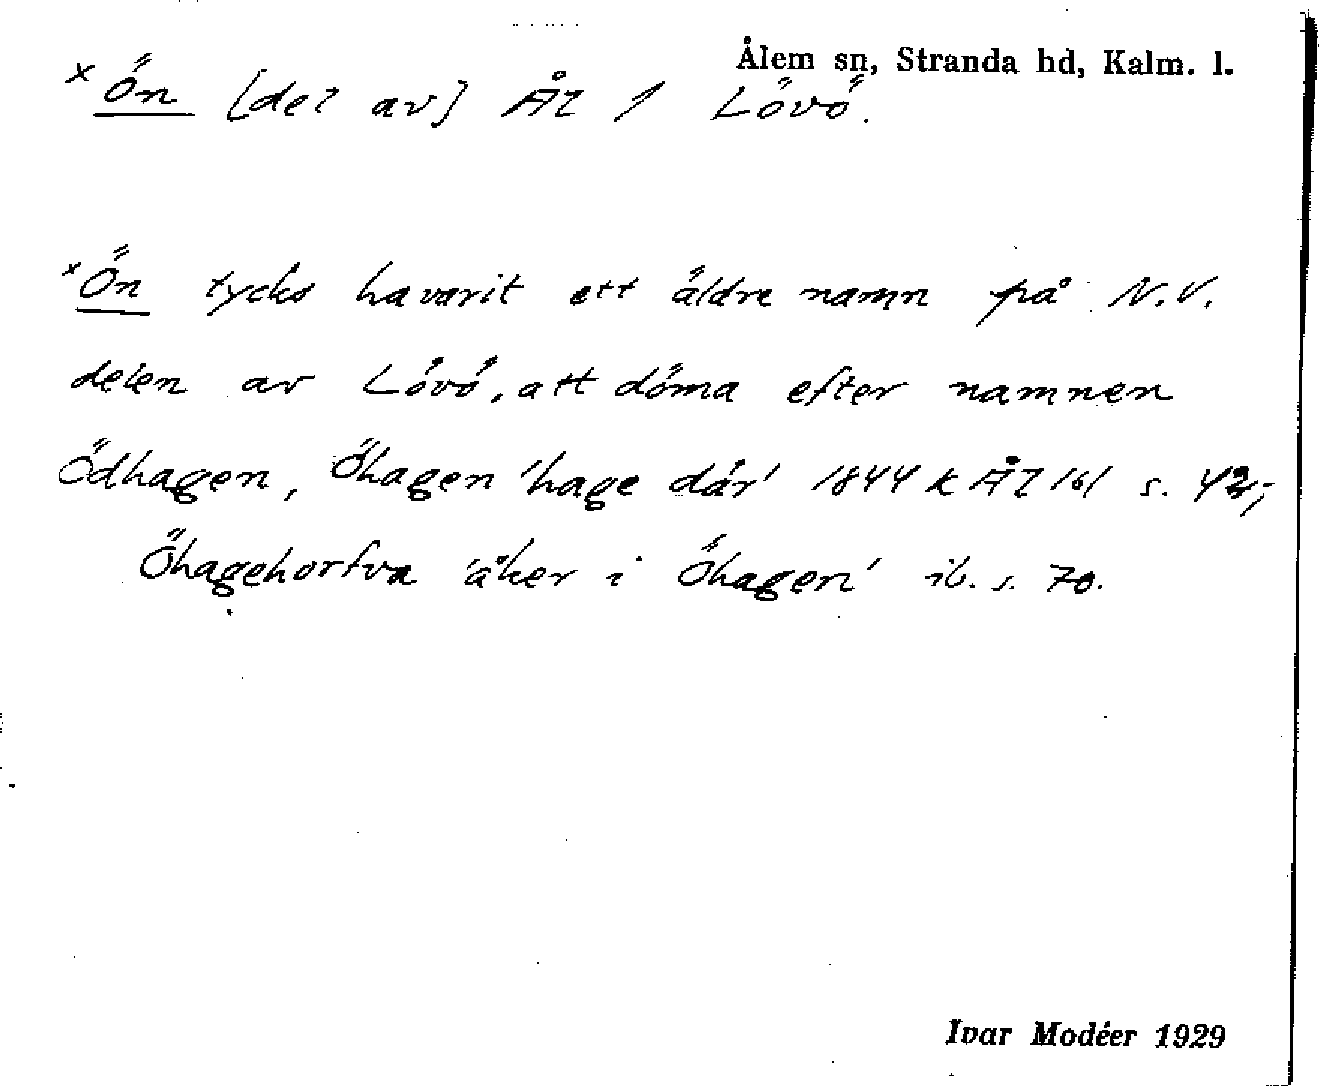 Ålem sn, Stranda hd, Kalm. l.
× Ön [del av] ÄZ 1 Lövö.
× Ön tycks ha varit ett äldre namn på N.V.
delen av Lövö, att döma efter namnen
Ödhagen, Öhagen 'hage där' 1844 k ÅZ 161 s. 42;
Öhagehorfva 'åker i Öhagen' ib. s. 70.
Ivar Modéer 1929